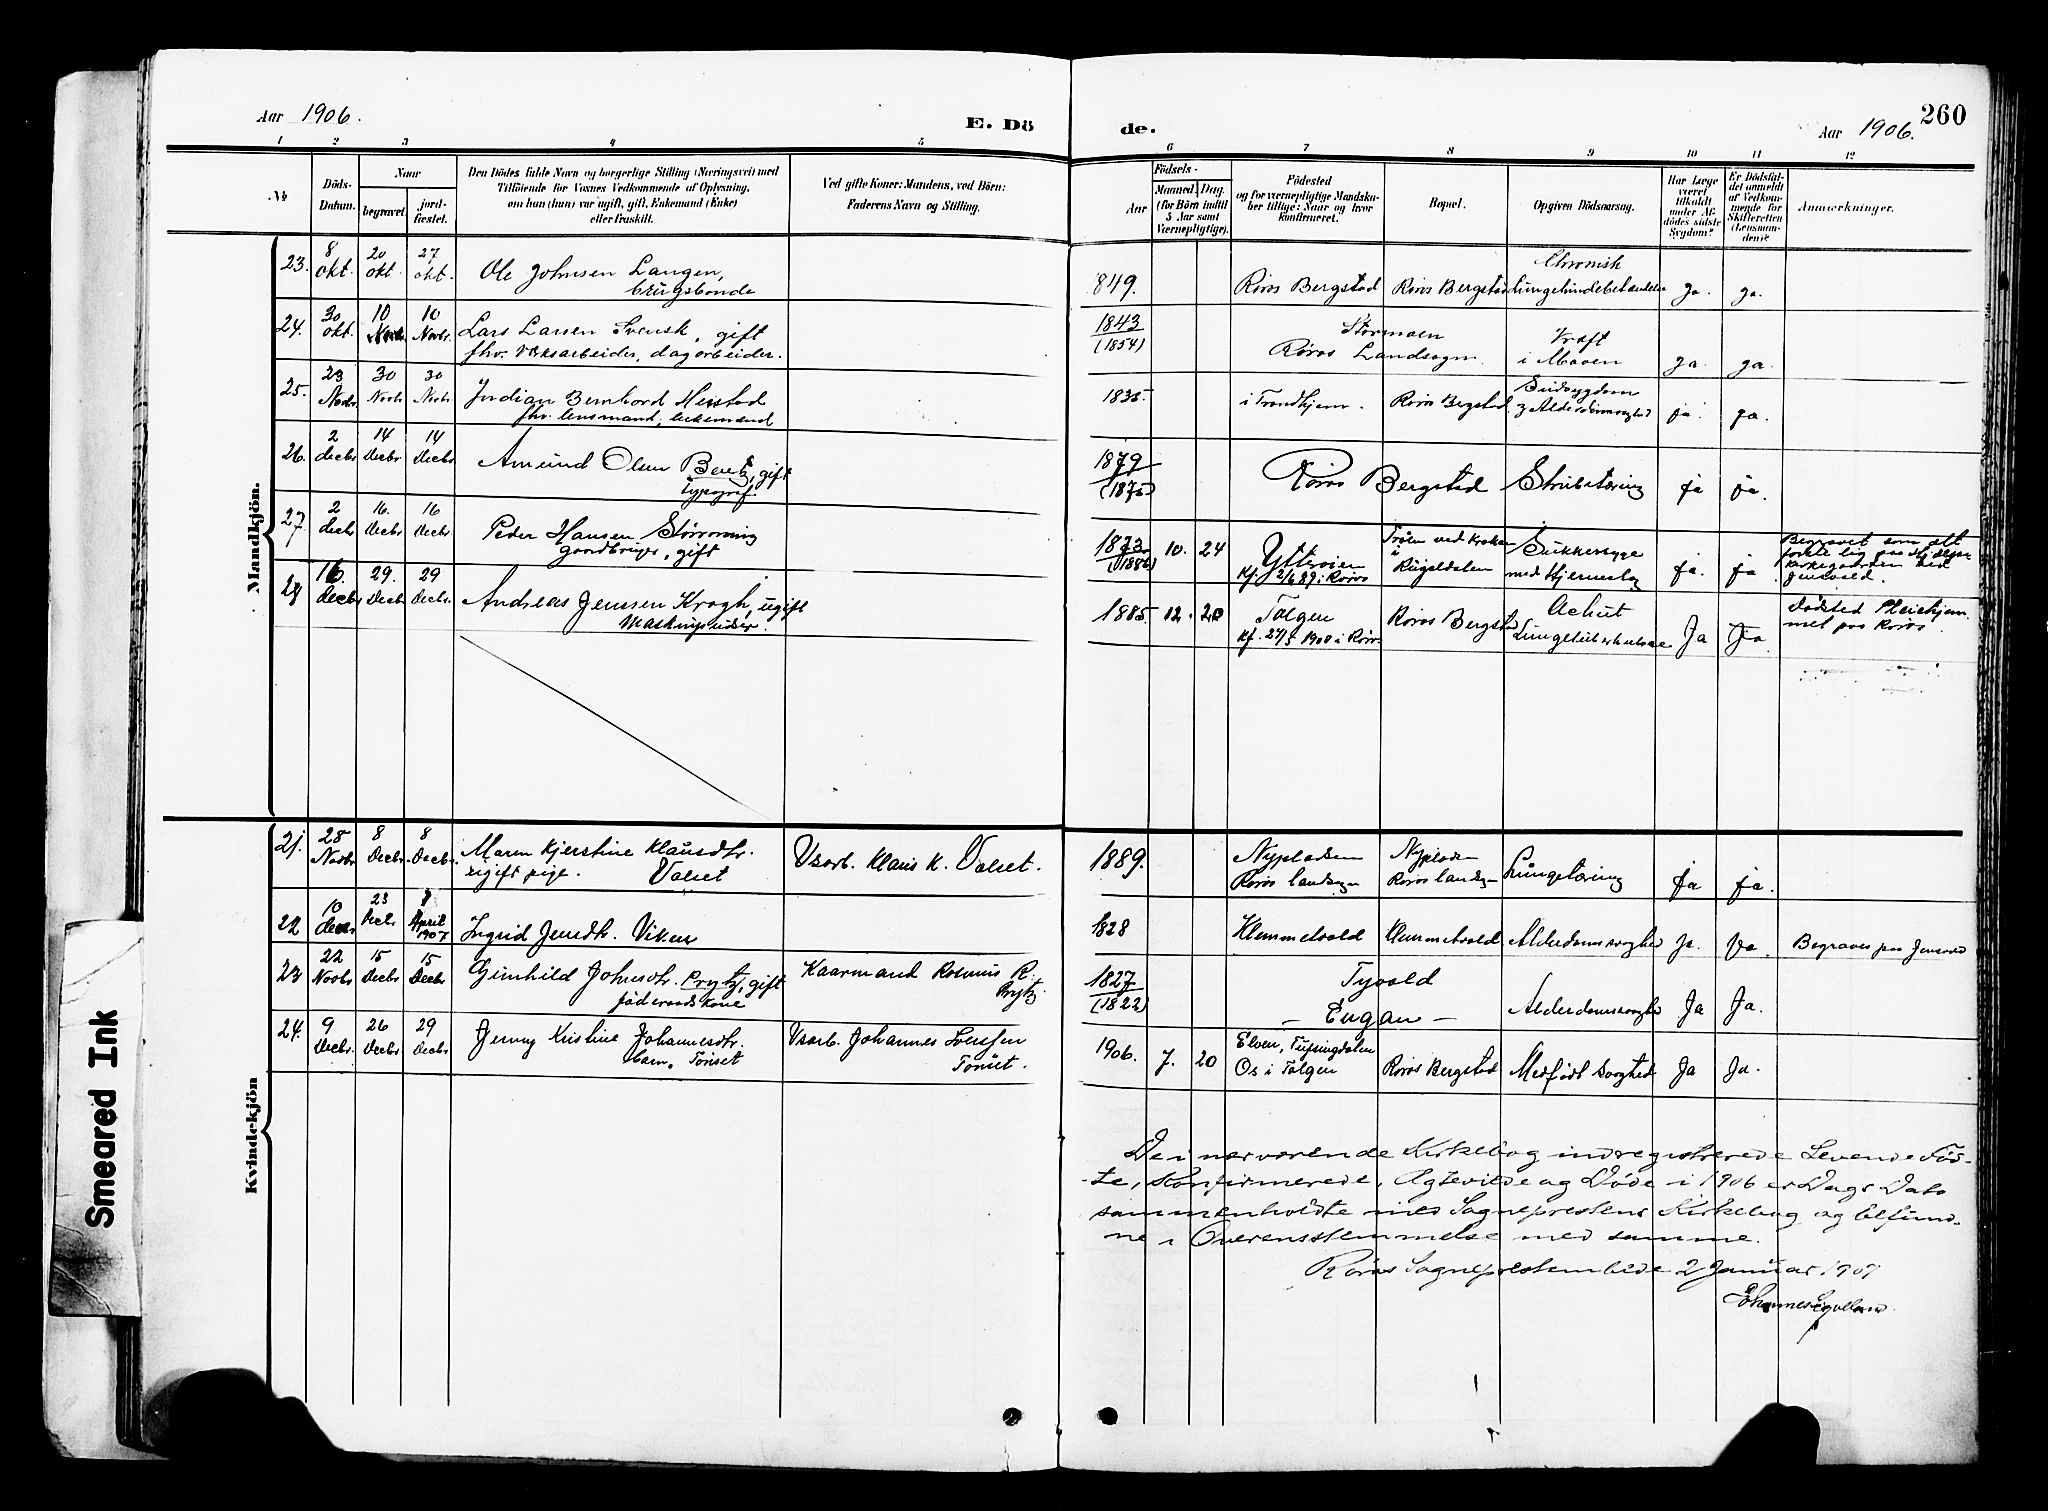 Aar 1906.
E. Dö
de.
Aar 1906.
260
1 2 3 4 5 6 7 8 9 10 11 12
No
Döds-
Datum.
Naar
begravet.
jord-
fæstet.
Den Dödes fulde Navn og borgerlige Stilling (Næringsvei) med
Tilföiende for Voxnes Vedkommende af Oplysning,
om han (hun) var ugift, gift, Enkemand (Enke)
eller fraskilt.
Ved gifte Koner: Mandens, ved Börn:
Faderens Navn og Stilling.
Födsels-
Aar
Maaned. Dag.
(for Börn indtil
5 Aar samt
Værnepligtige).
Födested
og for værnepligtige Mandska-
ber tillige: Naar og hvor
konfirmeret.
Bopæl.
Opgiven Dödsaarsag.
Har Læge
været
tilkaldt
under Af-
dödes sidste
Sygdom?
Er Dödsfal-
det anmeldt
af Vedkom-
mende for
Skifteretten
(Lensman-
den)?
Anmærkninger.
Mandkjön.
23. 8 okt. 20 okt. 27 okt. Ole Johnsen Langen,
brugsbonde
849. Røros Bergstad Røros Bergstad Chronisk
Lungehindebetændelse ja. ja.
24. 30 okt. 10 Novbr. 10 Novbr. Lars Larsen Svensk, gift
fhv. verksarbeider, dagarbeider.
1843
(1854) Stormoen
Røros Landsogn. Kræft
i Maven ja. ja.
25. 23 Novbr. 30 Novbr. 30 Novbr. Bernhard Meistad
fhv. lensmand, enkemand
1835. i Trondhjem. Røros Bergstad. ja. ja.
26. 2 decbr. 14 Decbr. 14 Decbr. Amund Olsen Bentz, gift
Typograf.
1879
(1875) Røros Bergstad Strubetæring ja ja.
27. 2 decbr. 16. Decbr. 16 Decbr. Peder Hansen
gaardbruger, gift
1873 10. 24 Ytterøien
Kf. i Røros
i
Rugeldalen Sukkersyge
med Hjerneslag ja. ja
Begravet som
Jensvold.
28 16. Decbr. 29. Decbr. 29 Decbr. Andreas Jenssen Krogh, ugift
Maskinpudser.
1885. 12. 20 Tolgen
Kf. 27/5 1900 i Røros Røros Bergstad Achut
Lungetuberkulose Ja Ja.
dødsted Pleiehjem-
met paa Røros.
Kvindekjön
21. 28 Novbr 8 Decbr. 8 Decbr. Maren Kjerstine Klausdtr.
ugift pige. Valset
Vsarb. Klaus K. Valset.
1889. Nypladsen
Røros landsogn Nypladsen
Røros landsogn Lungetæring ja ja.
22 10 decbr 23 Decbr. 8 April
1907 Ingrid Jensdtr. Viken
1828 Klemmetvold Klemmetvold Alderdomssvaghed Ja. Ja. Begraves paa Jensvold
23 22 Novbr 15 Decbr 15 Decbr Gunhild Johnsdtr. Prytz, gift
føderaadskone
Kaarmand Rasmus R.
Prytz.
1827
(1822) Tyvold
- Engan - Alderdomssvaghed Ja Ja.
24. 9 Decbr. 26 Decbr 29 Decbr Jenny Kristine Johannesdtr.
barn, Tønset
Vsarb. Johannes Iverssen
Tønset.
1906. 7. 20 Elven, Tufsingdalen
Os i Tolgen Røros Bergstad Medfødt svaghed Ja Ja.
De i nærværende Kirkebog indregistrerede Levende Fød-
te, Konfirmerede, Ægteviede og Døde i 1906 er Dags Dato
sammenholdte med Sognepræstens Kirkebog og befund-
ne i Overensstemmelse med samme.
Røros Sognepræstembede 2 Januar 1907
Smeared Ink